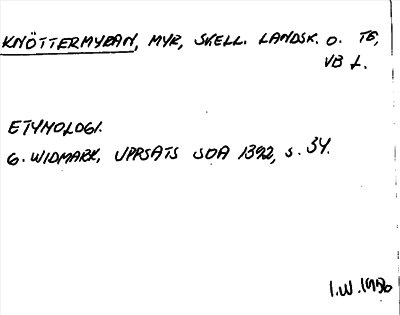 KNÖTTERMYRAN, MYR, SKELL. LANDSK. O. TG,
VB L.
ETYMOLOGI.
G. WIDMARK, UPPSATS SOA 1392, S. 34.
I.W. 1956